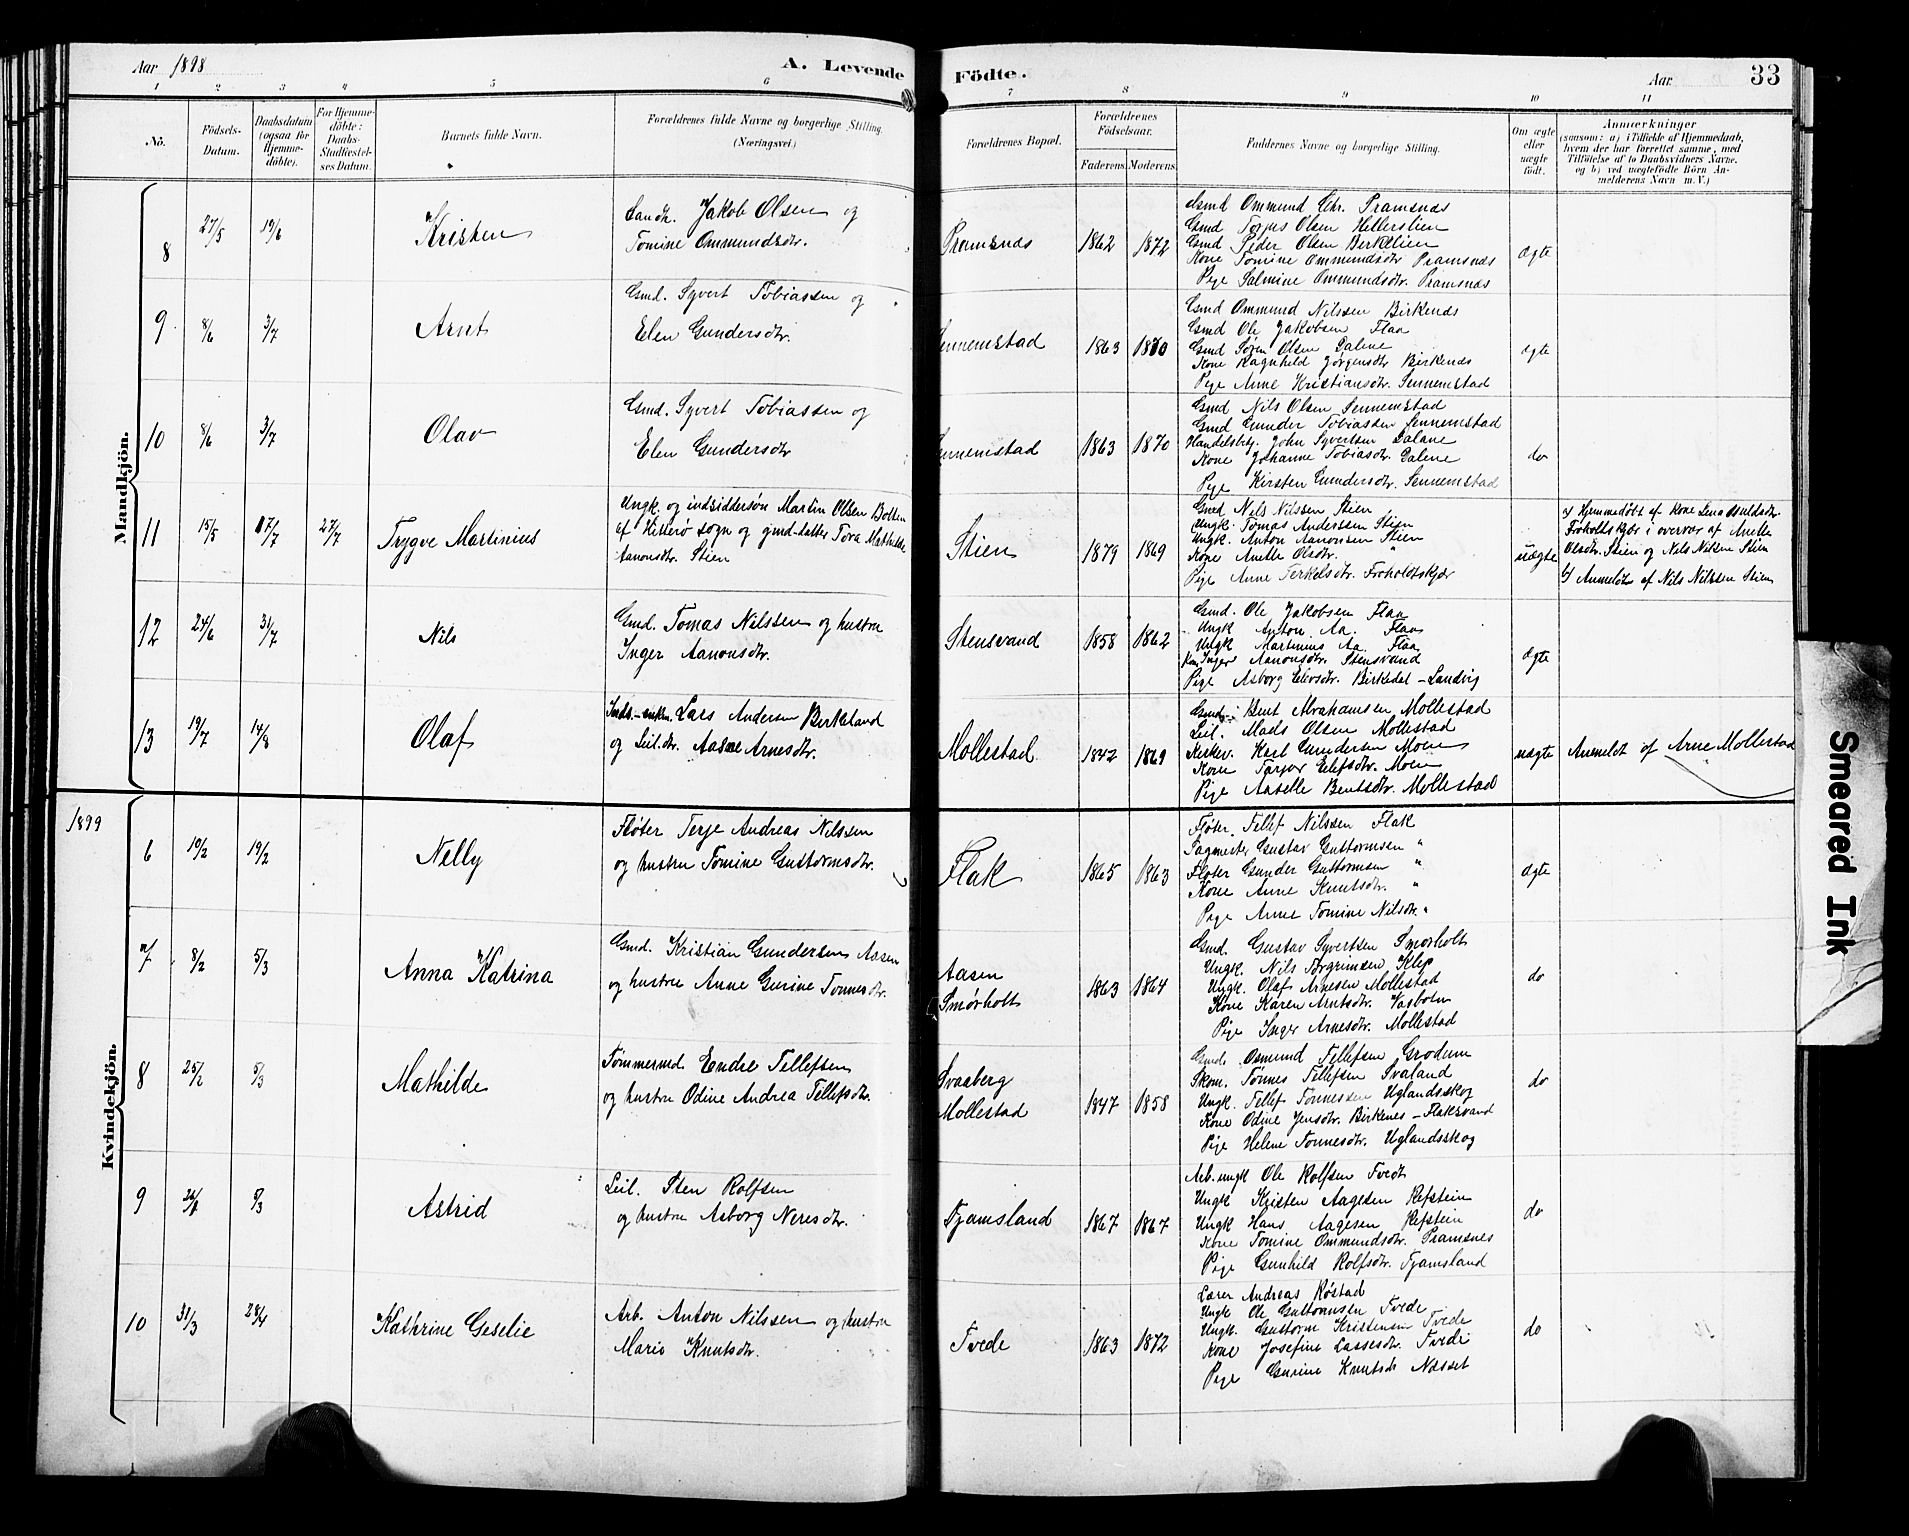 Aar 1898
A. Levende Födte.
Aar
33
1 2 3 4 5 6 7 8 9 10 11
No.
Födsels-Datum.
Daabsdatum (ogsaa for Hjemmedöbte).
For Hjemmedöbte: Daabs-Stadfæstelses Datum.
Barnets fulde Navn.
Forældrenes fulde Navne og borgerlige Stilling. (Næringsvei.)
Forældrenes Bopæl.
Forældrenes Födselsaar.
Faderens Moderens
Faddernes Navne og borgerlige Stilling.
Om ægte eller uægte født.
Anmærkninger
(saasom: a) i Tilfælde af Hjemmedaab, hvem der har forrettet samme, med Tilföielse af to Daabsvidners Navne. og b) ved uægtefödte Börn Anmelderens Navn m. V.)
Mandkjön.
8 27/5 19/6 Kristen
Jakob Olsen og
Tomine Ommundsdtr.
Pramsnæs 1862 1872
Gmd Ommund Chr. Pramsnæs
Gmd Torjus Olsen Hellerslien
Gmd Peder Olsen Birkelien
Kone Tomine Ommundsdtr Pramsnæs
Pige Salmine Ommundsdtr. Pramsnæs
Ægte
9 8/6 3/7 Arnt
Gmd. Syvert Tobiassen og
Elen Gundersdtr.
Sennemstad 1863 1870
Gmd Ommund Nilssen Birkenæs
Gmd Ole Jakobsen Flaa
Gmd Søren Olsen Dalene
Kone Ragnhild Jørgensdtr Birkenæs
Pige Anne Kristiansdtr. Sennemstad
Ægte
10 8/6 3/7 Olav
Gmd. Syvert Tobiassen og
Elen Gundersdtr
Sennemstad 1863 1870
Gmd Nils Olsen Sennemstad
Gmd Gunder Tobiassen Sennemstad
Handelsbetj. John Syvertsen Dalane
Kone Johanne Tobiasdtr. Dalene
Pige Kirsten Gundersdtr. Sennemstad
do
11 15/5 17/7 27/7 Trygve Martinius
Ungk. og indsiddersøn Martin Olsen
af Hitterø sogn og gmd-datter Tora Mathilde
Aanonsdtr. Stien
Stien 1879 1869
Gmd Nils Nilssen Stien
Ungk. Tomas Anderssen Stien
Ungk. Anton Aanonsen Stien
Kone Anette Olsdtr. "
Pige Anne Terkelsdtr. Froholdtskjær
uægte
a/ Hjemmedöbt af Kone
Froholdtskjær i overvær af Anette
Olsdtr. Stien og Nils Nilsen Stien
b/ Anmeldt af Nils Nilssen Stien
12 24/6 31/7 Nils
Gmd. Tomas Nilssen og hustru
Inger Aanonsdtr.
Stensvand 1858 1862
Gmd. Ole Jakobsen Flaa
Ungk Anton Aa. Flaa
Ungk Martinius Aa. Flaa
Kone Inger Aanonsdtr. Stensvand
Pige Asborg Elevsdtr. Birkedal - Landvig
Ægte
13 19/7 14/8 Olaf
Inds.-enkm. Lars Andersen Birkeland
og Leil.dtr. Aasne Arnesdtr.
Mollestad 1842 1869
Gmd. Bent Abrahamsen Mollestad
Leil. Mads Olsen Mollestad
Kirkev. Karl Gundersen Moen
Kone Torjør Elefsdtr. Moen
Pige Aaselle Bentsdtr. Mollestad
uægte
Anmeldt af Arne Mollestad
1899
Kvindekjön.
6 10/2 19/2 Nelly
Fløter Terje Andreas Nilssen
og hustru Tomine Guttormsdtr.
Flak 1865 1863
Fløter Tellef Nilssen Flak
Sagmester Gustav Guttormsen "
Fløter Gunder Guttormsen "
Kone Anne Knutsdtr. "
Pige Anne Tomine Nilsdtr. "
Ægte
7 8/2 5/3 Anna Katrina
Gmd. Kristian Gundersen Aasen
og hustru Anne Gurine Tonnesdtr.
Aasen
Smørholt
1863 1864
Gmd. Gustav Syvertsen Smørholt
Ungk. Nils Torgrimsen Klep
Ungk. Olaf Arnesen Mollestad
Kone Karen Arntsdtr.
Pige Inger Arnesdtr. Mollestad
do
8 25/2 5/3 Mathilde
Tömmermd. Endre Tellefsen
og hustru Odine Andrea Tellefsdtr.
Svaaberg
Mollestad
1847 1858
Gmd. Osmund Tellefsen Grødum
Skom. Tønnes Tellefsen Svaland
Ungk. Tellef Tønnessen Uglandsskog
Kone Odine Jensdtr. Birkenes - Flaksvand
Pige Helene Tonnesdtr. Uglandsskog
do
9 5/3 Astrid
Leil. Sten Rolfsen
og hustru Asborg Neresdtr.
Tjamsland 1867 1867
Arb. ungk Ole Rolfsen Tvedt
Ungk Kristen Aagesen Refstein
Ungk Hans Aagesen Refstein
Kone Tomine Ommundsdtr. Pramsnes
Pige Gunhild Rolfsdtr. Tjamsland
do
10 31/3 28/4 Kathrine Geselie
Arb. Anton Nilssen og hustru
Marie Knutsdtr.
Tvede 1863 1872
Lærer Andreas Røstad
Ungk Ole Guttormsen Tvede
Ungk. Guttorm Kristensen Tvede
Kone Josefine Lassesdtr. Tvede
Pige Gurine Knutsdt Næsset
do
Smeared Ink